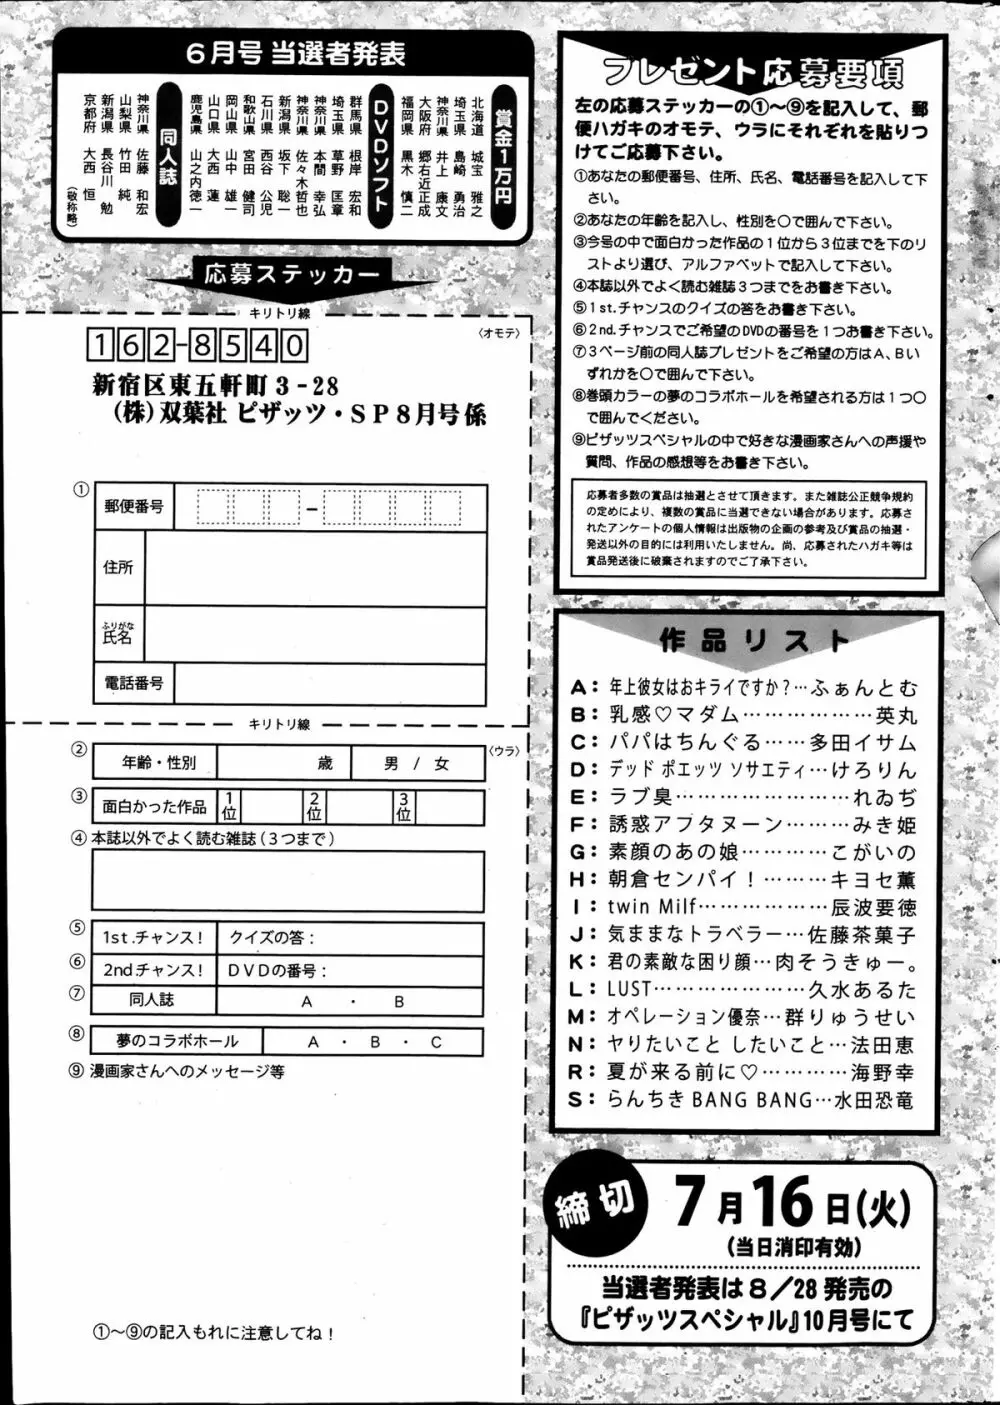 6月号 当選者発表
賞金1万円
北海道 城宝 雅之
埼玉県 島崎 勇治
神奈川県 井上 康文
大阪府 郷右近正成
福岡県 黒木 慎二
DVDソフト
群馬県 根岸 宏和
埼玉県 草野 匡章
神奈川県 本間 幸弘
神奈川県 佐々木哲也
新潟県 坂下 聡一
石川県 西谷 公児
和歌山県 宮田 健司
岡山県 山中 雄一
山口県 大西 蓮
鹿児島県 山之内徳一
同人誌
神奈川県 佐藤 和宏
山梨県 竹田 純
新潟県 長谷川 勉
京都府 大西 恒
(敬称略)
応募ステッカー
キリトリ線
〈オモテ〉
162-8540
新宿区東五軒町3-28
(株)双葉社 ピザッツ・SP8月号係
①
郵便番号
-
住所
ふりがな
氏名
電話番号
キリトリ線
〈ウラ〉
② 年齢・性別 歳 男 / 女
③ 面白かった作品 1位 2位 3位
④本誌以外でよく読む雑誌(3つまで)
⑤ 1st.チャンス! クイズの答:
⑥ 2ndチャンス! DVDの番号:
⑦ 同人誌 A ・ B
⑧ 夢のコラボホール A ・ B ・ C
⑨漫画家さんへのメッセージ等
①〜⑨の記入もれに注意してね!
プレゼント応募要項
左の応募ステッカーの①〜⑨を記入して、郵
便ハガキのオモテ、ウラにそれぞれを貼りつ
けてご応募下さい。
①あなたの郵便番号、住所、氏名、電話番号を記入して下
さい。
②あなたの年齢を記入し、性別を○で囲んで下さい。
③今号の中で面白かった作品の1位から3位までを下のリ
ストより選び、アルファベットで記入して下さい。
④本誌以外でよく読む雑誌3つまでをお書き下さい。
⑤1st.チャンスのクイズの答をお書き下さい。
⑥2nd.チャンスでご希望のDVDの番号を1つお書き下さい。
⑦3ページ前の同人誌プレゼントをご希望の方はA、Bい
ずれかを○で囲んで下さい。
⑧巻頭カラーの夢のコラボホールを希望される方は1つ○
で囲んでください。
⑨ピザッツスペシャルの中で好きな漫画家さんへの声援や
質問、作品の感想等をお書き下さい。
応募者多数の賞品は抽選とさせて頂きます。また雑誌公正競争規約
の定めにより、複数の賞品に当選できない場合があります。応募さ
れたアンケートの個人情報は出版物の企画の参考及び賞品の抽選・
発送以外の目的には利用いたしません。尚、応募されたハガキ等は
賞品発送後に破棄されますのでご了承下さい。
作品リスト
A:年上彼女はおキライですか?…ふぁんとむ
B:乳感♡マダム………………英丸
C:パパはちんぐる……多田イサム
D:デッド ポエッツ ソサエティ…けろりん
E:ラブ臭……………………れゐぢ
F:誘惑アフタヌーン………みき姫
G:素顔のあの娘…………こがいの
H:朝倉センパイ!………キヨセ薫
I:twin Milf………………辰波要徳
J:気ままなトラベラー…佐藤茶菓子
K:君の素敵な困り顔…肉そうきゅー。
L:LUST…………………久水あるた
M:オペレーション優奈…群りゅうせい
N:ヤりたいこと したいこと…法田恵
R:夏が来る前に♡…………海野幸
S:らんちきBANG BANG…水田恐竜
締切
7月16日(火)
(当日消印有効)
当選者発表は8/28発売の
『ピザッツスペシャル』10月号にて